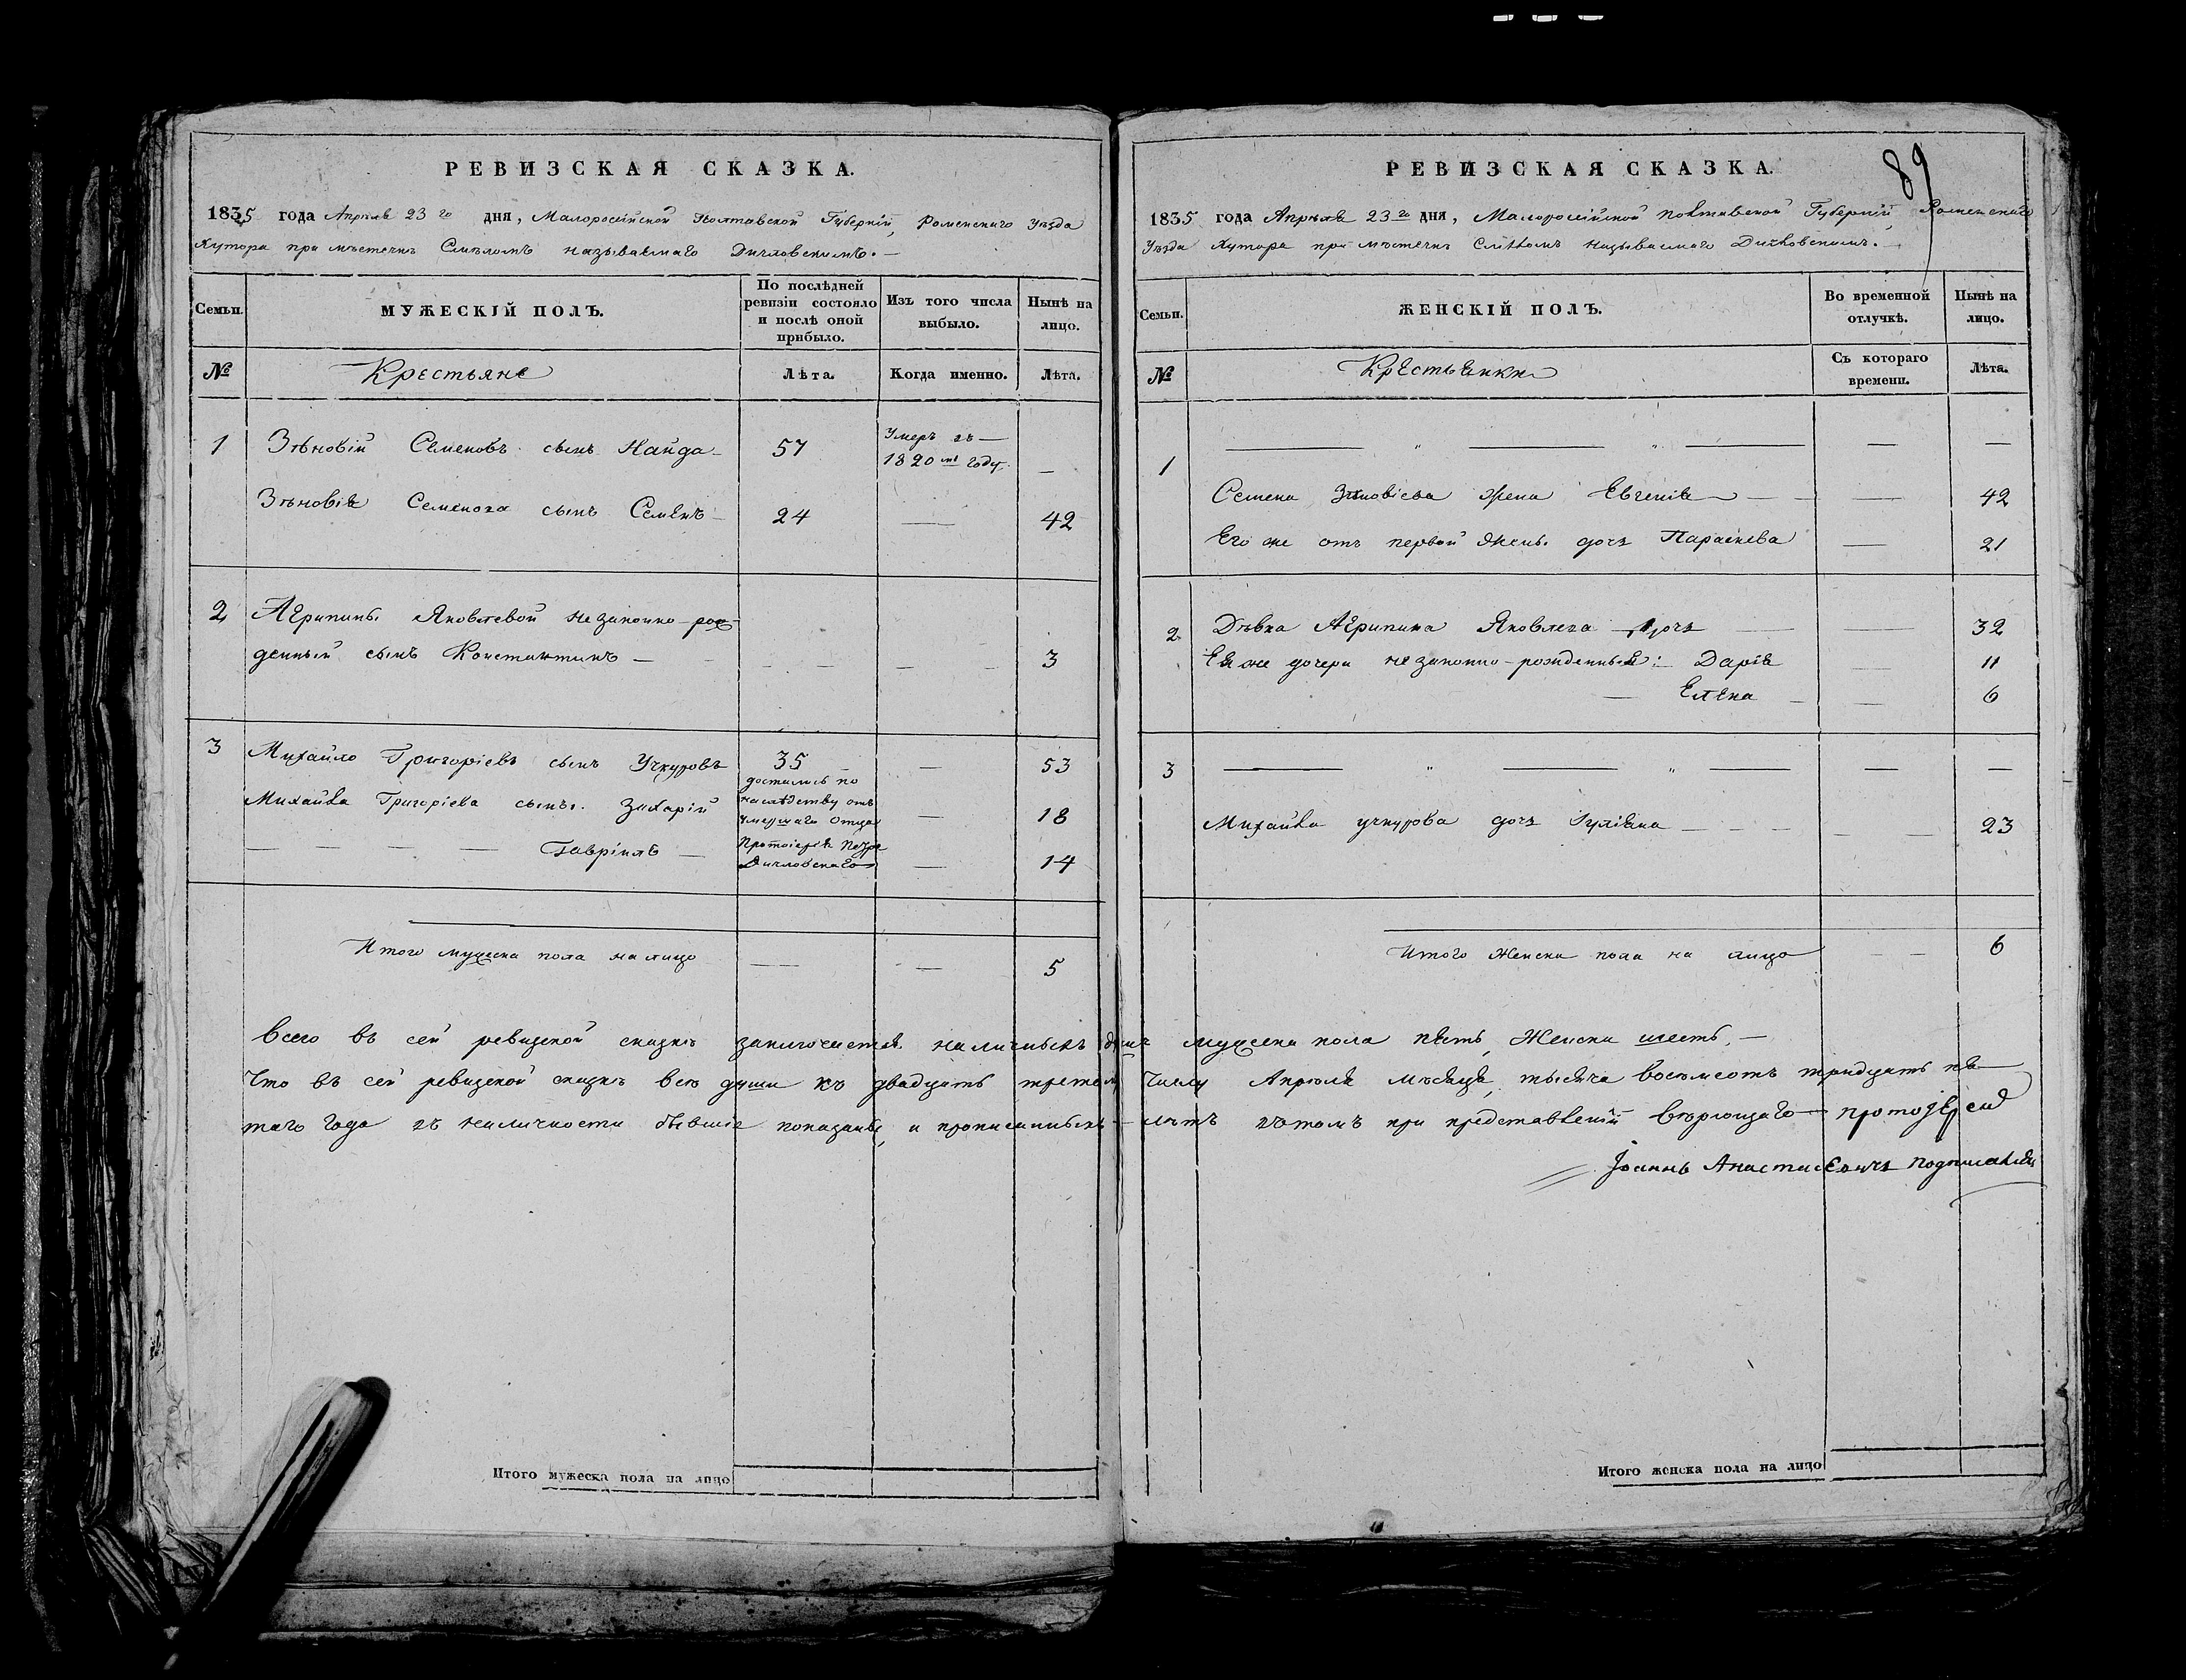 РЕВИЗСКАЯ СКАЗКА.
1835 года Апрѣля 23го дня, Малоросійской Полтавской Губерніи, Роменскаго уѣзда
Хутора при мѣстечкѣ Смѣломъ называемаго Дичловскимъ.
Семьи. МУЖЕСКІЙ ПОЛЪ. По послѣдней ревизіи состояло и послѣ оной прибыло. Изъ того числа выбыло. Нынѣ на лицо.
№ Крестьяне Лѣта. Когда именно. Лѣта.
1 Зѣновій Семеновъ сынъ Найда 57 Умеръ въ 1820мъ году. —
Зѣновія Семенова сынъ Семенъ 24 — 42
2 Агрипины Яковлевой незаконно-рож-
денный сынъ Константинъ — — — 3
3 Михайло Григоріевъ сынъ Учкуровъ 35 — 53
Михайла Григоріева сыны. Захарій достались по наслѣдству отъ умершаго отца — 18
— — — — Гавріилъ — Протоіерея Петра Дичловскаго — 14
Итого мужеска пола на лицо — — 5
Итого мужеска пола на лицо
РЕВИЗСКАЯ СКАЗКА.
89
1835 года Апрѣля 23го дня, Малоросійской Полтавской Губерніи, Роменскаго
Уѣзда Хутора при мѣстечкѣ Смѣломъ называемаго Дичловскимъ.
Семьи. ЖЕНСКІЙ ПОЛЪ. Во временной отлучкѣ. Нынѣ на лицо.
№ Крестьянки Съ котораго времени. Лѣта.
1 — " — " — — —
Семена Зѣновіева жена Евгенія — — 42
Его же отъ первой жены дочь Параскева — 21
2 Дѣвка Агрипина Яковлева дочь — 32
Ея же дочери незаконно-рожденныя: Дарія — 11
— Елена — — 6
3 — " — " — — —
Михайла Учкурова дочь Іуліяна — — — — 23
Итого женска пола на лицо — — 6
Всего въ сей ревизской сказкѣ заключается наличныхъ душъ мужеска пола пять, женска шесть, —
Что въ сей ревизской сказкѣ всѣ души къ двадцать третему числу Апрѣля мѣсяца, тысяча восемсотъ тридцать пя-
таго года въ наличности бывшіе показаны, и прописанныхъ лѣтъ вътомъ при представленіи вѣрющаго протоіерей
Іоаннъ Анастасевичъ подписался
Итого женска пола на лицо